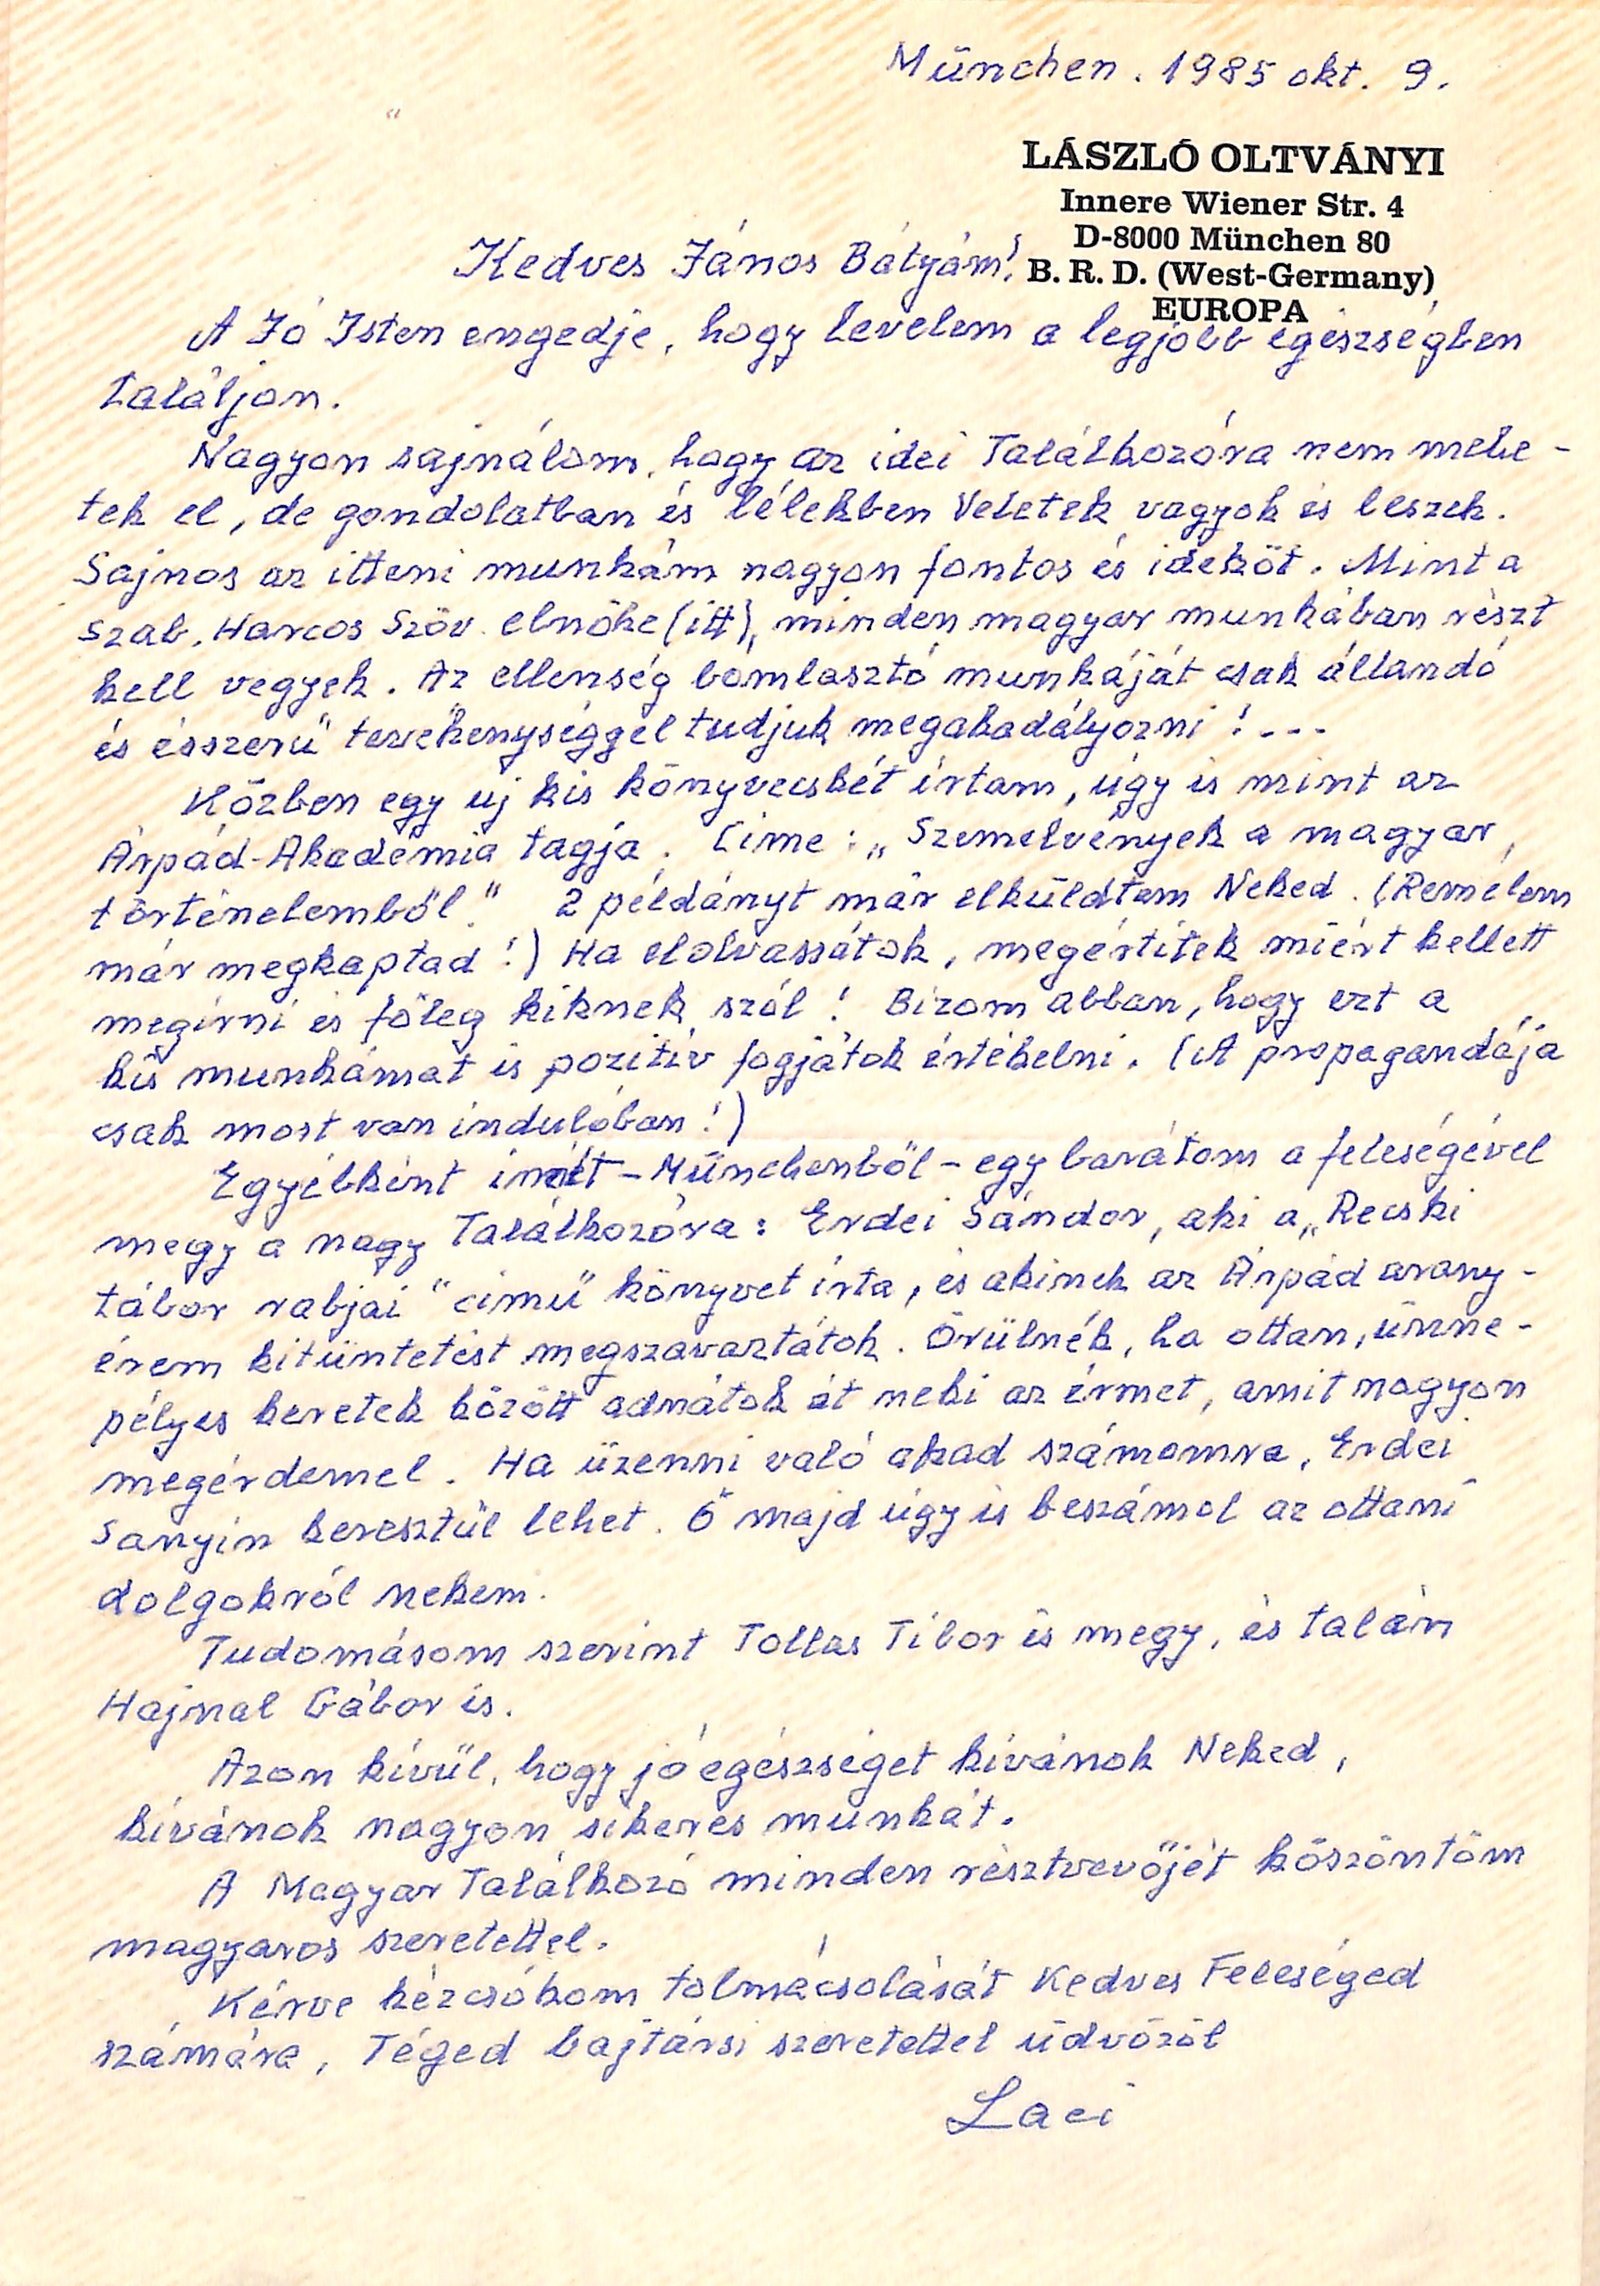 München. 1985 okt. 9.
LÁSZLÓ OLTVÁNYI
Innere Wiener Str. 4
D-8000 München 80
B. R. D. (West-Germany)
EUROPA
Kedves János Bátyám!
A Jó Isten engedje, hogy levelem a legjobb egészségben
találjon.
Nagyon sajnálom, hogy az idei Találkozóra nem mehe-
tek el, de gondolatban és lélekben Veletek vagyok és leszek.
Sajnos az itteni munkám nagyon fontos és ideköt. Mint a
Szab. Harcos Szöv. elnöke (itt), minden magyar munkában részt
kell vegyek. Az ellenség bomlasztó munkáját csak állandó
és ésszerű tevékenységgel tudjuk megakadályozni! ...
Közben egy új kis könyvecskét írtam, úgy is mint az
Árpád-Akadémia tagja. Címe: „Szemelvények a magyar
történelemből." 2 példányt már elküldtem Neked. (Remélem
már megkaptad!) Ha elolvassátok, megértitek miért kellett
megírni és főleg kiknek szól! Bízom abban, hogy ezt a
kis munkámat is pozitív fogjátok értékelni. (A propagandája
csak most van indulóban!)
Egyébként innét - Münchenből - egy barátom a feleségével
megy a nagy Találkozóra: Erdei Sándor, aki a „Recski
tábor rabjai" című könyvet írta, és akinek az Árpád arany-
érem kitüntetést megszavaztátok. Örülnék, ha ottan, ünne-
pélyes keretek között adnátok át neki az érmet, amit nagyon
megérdemel. Ha üzenni való akad számomra, Erdei
Sanyin keresztül lehet. Ő majd úgy is beszámol az ottani
dolgokról nekem.
Tudomásom szerint Tollas Tibor is megy, és talán
Hajnal Gábor is.
Azon kívül, hogy jó egészséget kívánok Neked,
kívánok nagyon sikeres munkát.
A Magyar Találkozó minden résztvevőjét köszöntöm
magyaros szeretettel.
Kérve kézcsókom tolmácsolását Kedves Feleséged
számára, Téged bajtársi szeretettel üdvözöl
Laci